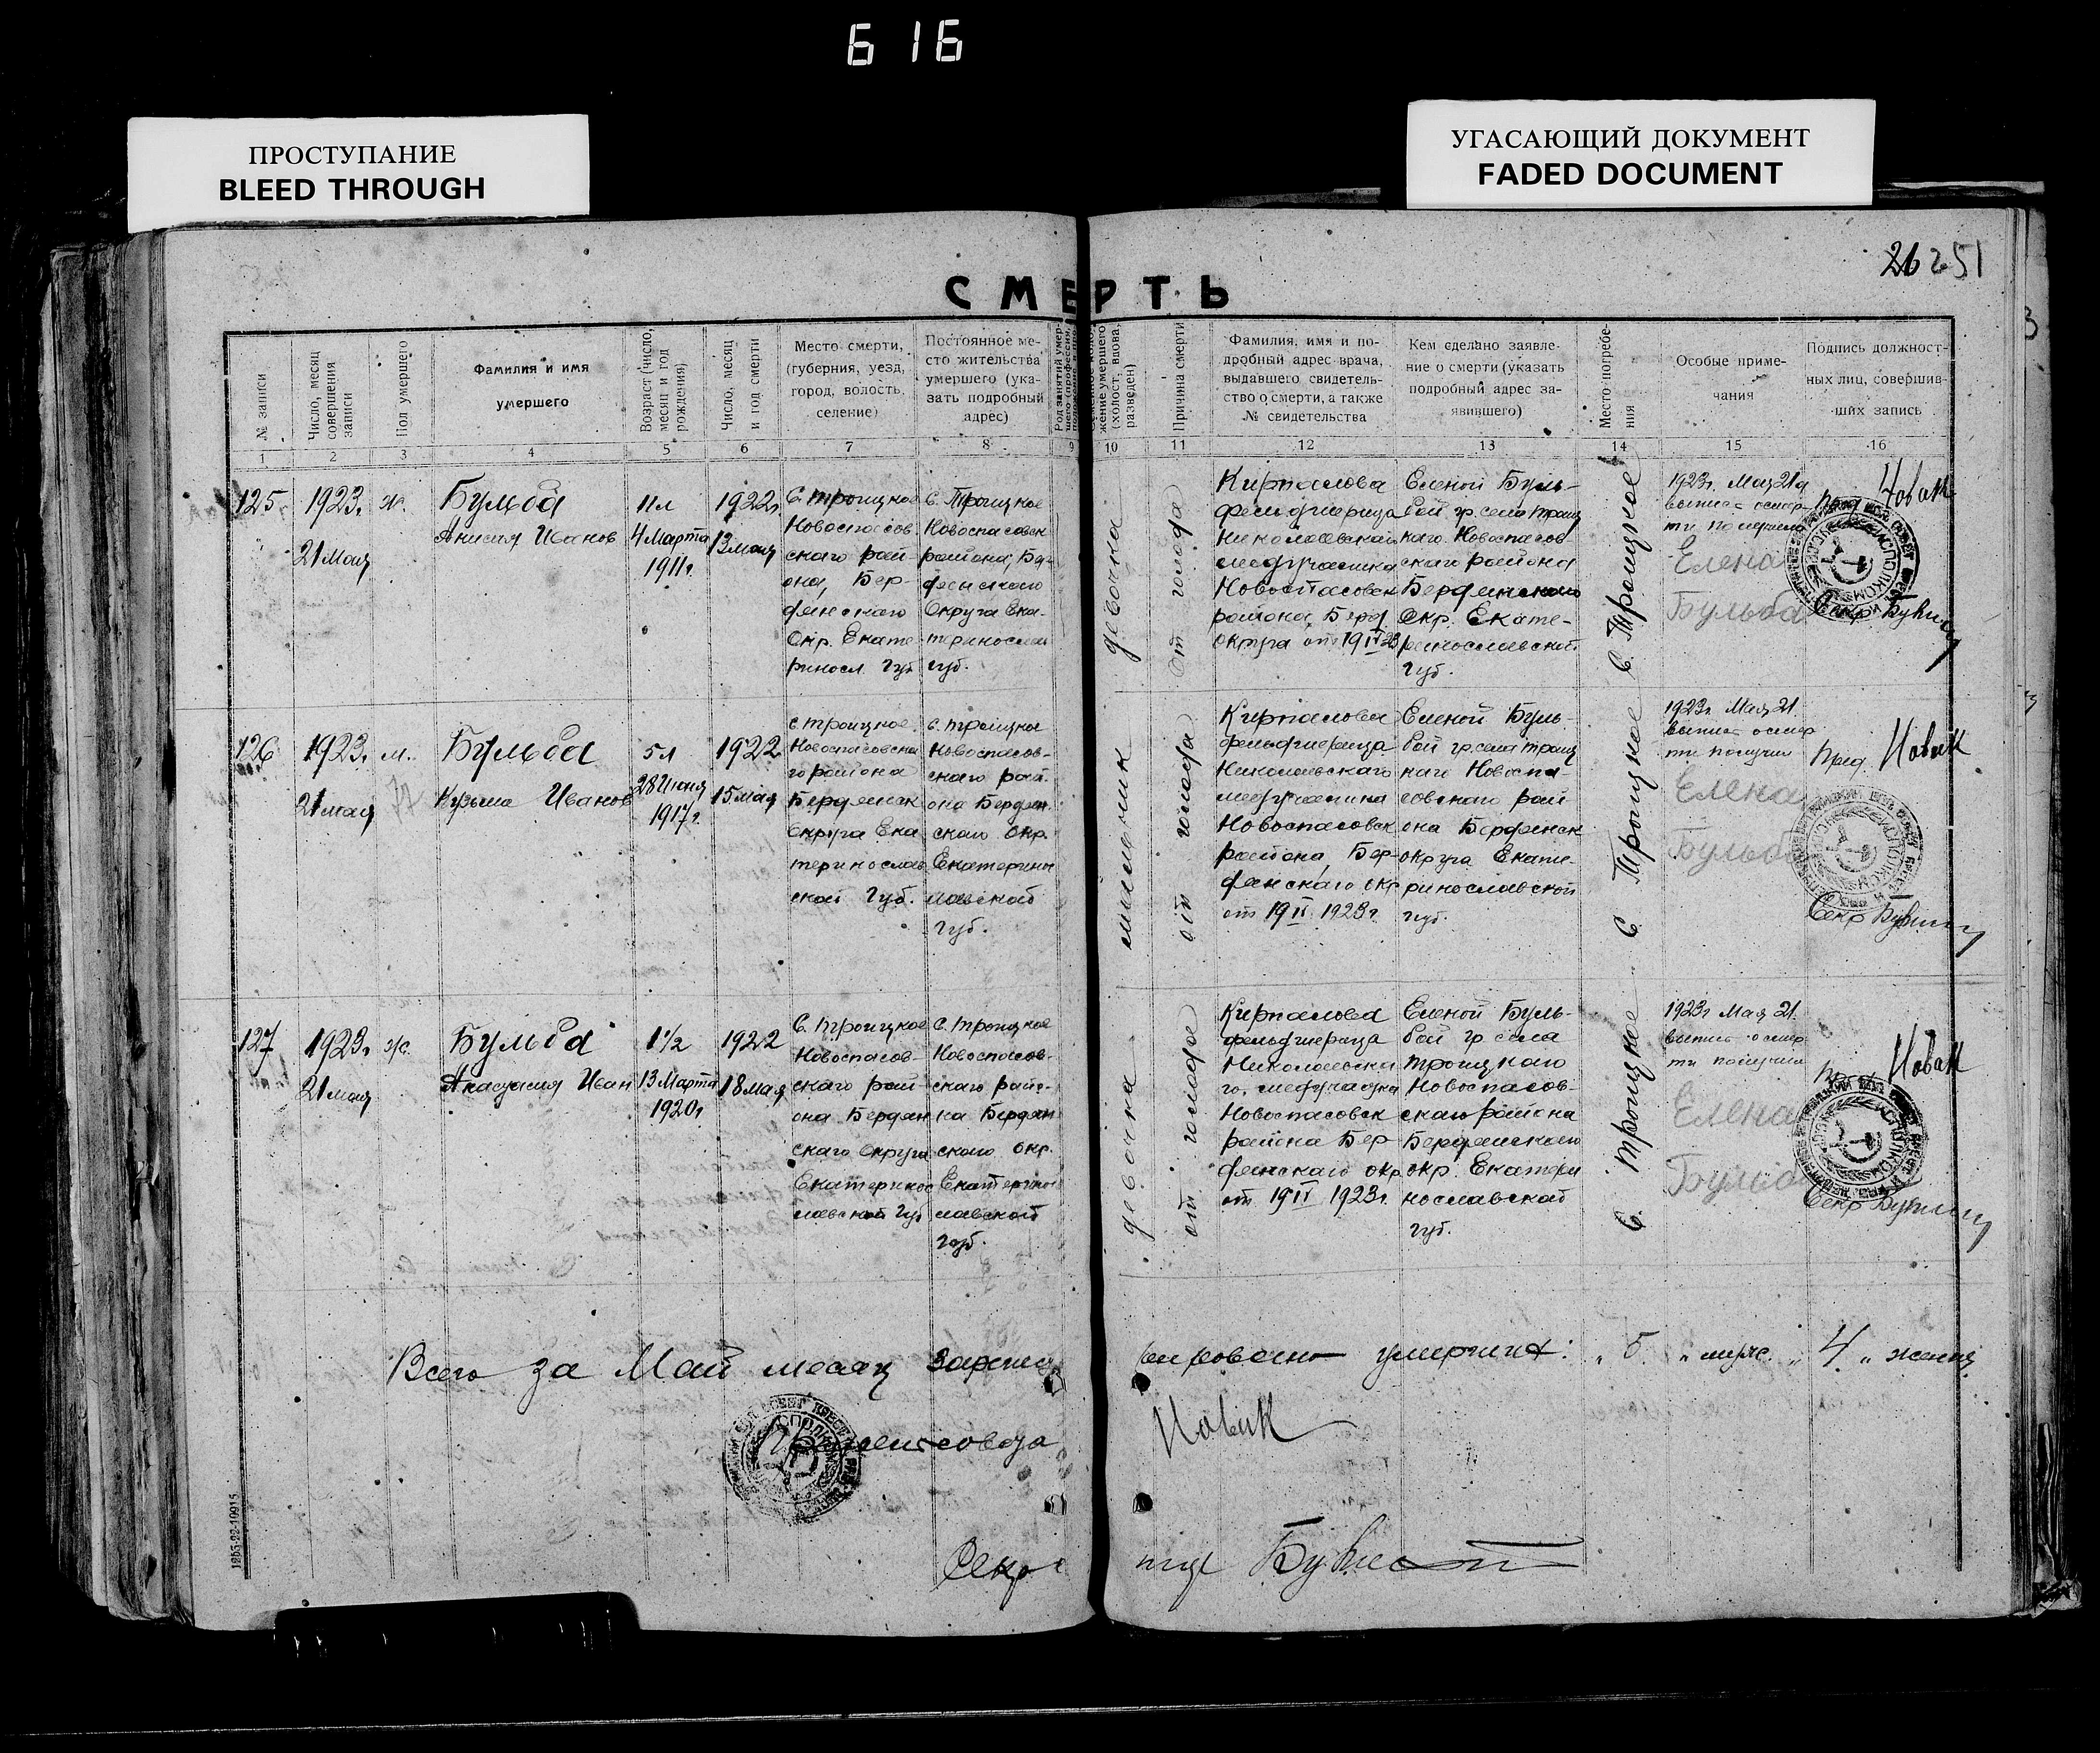 616
ПРОСТУПАНИЕ
BLEED THROUGH
УГАСАЮЩИЙ ДОКУМЕНТ
FADED DOCUMENT
26 251
СМЕРТЬ
№ записи
Число, месяц совершения записи
Пол умершего
Фамилия и имя
умершего
Возраст (число, месяц и год рождения)
Число, месяц и год смерти
Место смерти,
(губерния, уезд,
город, волость,
селение)
Постоянное ме-
сто жительства
умершего (ука-
зать подробный
адрес)
Причина смерти
Фамилия, имя и по-
дробный адрес врача,
выдавшего свидетель-
ство о смерти, а также
№ свидетельства
Кем сделано заявле-
ние о смерти (указать
подробный адрес за-
явившего)
Место погребе-
ния
Особые приме-
чания
Подпись должност-
ных лиц, совершив-
ших запись
1 2 3 4 5 6 7 8 9 10 11 12 13 14 15 16
125
1923г.
21 Мая
ж.
Бульба
Анисия Иванов
11л
4 Марта
1911г.
1922г
13 мая
с. Троицкое
Новоспасов
скаго рай-
она, Бер-
дянскаго
Окр. Екате
риносл. Губ
с. Троицкое
Новоспасовск
района, Бер-
дянскаго
Округа Ека-
теринослав
губ.
девочка
от голода
Кирпалова
фельдшерица
Николаевскаго
медучастка
Новоспасовск
района Берд
округа от 19 IV 23
Еленой Буль-
бой гр. села Троиц
каго Новоспасов
скаго района
Бердянскаго
Окр. Екате-
ринославской
губ.
С. Троицкое
1923г. Мая 21 д
выпись о смер
ти получила
Елена
Бульба
пред Новак
Секр
126
1923г.
21 мая
м.
Бульба
Кузьма Иванов
5л
28 Июня
1917г.
1922
15 мая
с. Троицкое
Новоспасовска
го района
Бердянск
округа Ека
теринослав
ской Губ.
с. Троицкое
Новоспасов-
скаго рай-
она Бердян
скаго окр.
Екатерино
славской
Губ.
мальчик
от голода
Кирпалова
фельдшерица
Николаевскаго
медучастка
Новоспасовск
района, Бер-
дянскаго окр
от 19 IV 1923г.
Еленой Буль-
бой гр. села Троиц
каго Новоспа-
совскаго рай-
она Бердянск
округа Екате-
ринославской
губ.
С. Троицкое
1923г. Мая 21.
выпись о смер
ти получил
Елена
Бульба
пред. Новак
Секр
127
1923г.
21 мая
ж.
Бульба
Акадия Иван
1½
13 Марта
1920г.
1922
18 мая
с. Троицкое
Новоспасов-
скаго рай-
она Бердян
скаго округа
Екатеринос
лавской Губ
с. Троицкое
Новоспасов-
скаго райо-
на Бердян
скаго окр.
Екатеринос
лавской
Губ.
девочка
от голода
Кирпалова
фельдшерица
Николаевска
го медучастка
Новоспасовск
района Бер
дянскаго окр
от 19 IV 1923г.
Еленой Буль-
бой гр. села
Троицкаго
Новоспасов-
скаго района
Бердянскаго
окр. Екатери
нославской
губ.
С. Троицкое
1923г Мая 21.
выпись о смер
ти получила
Елена
Бульба
Новак
Секр
Всего за Май месяц зарегистрировано умерших: „5„ муж. „4„ женщ
Новак
Секр